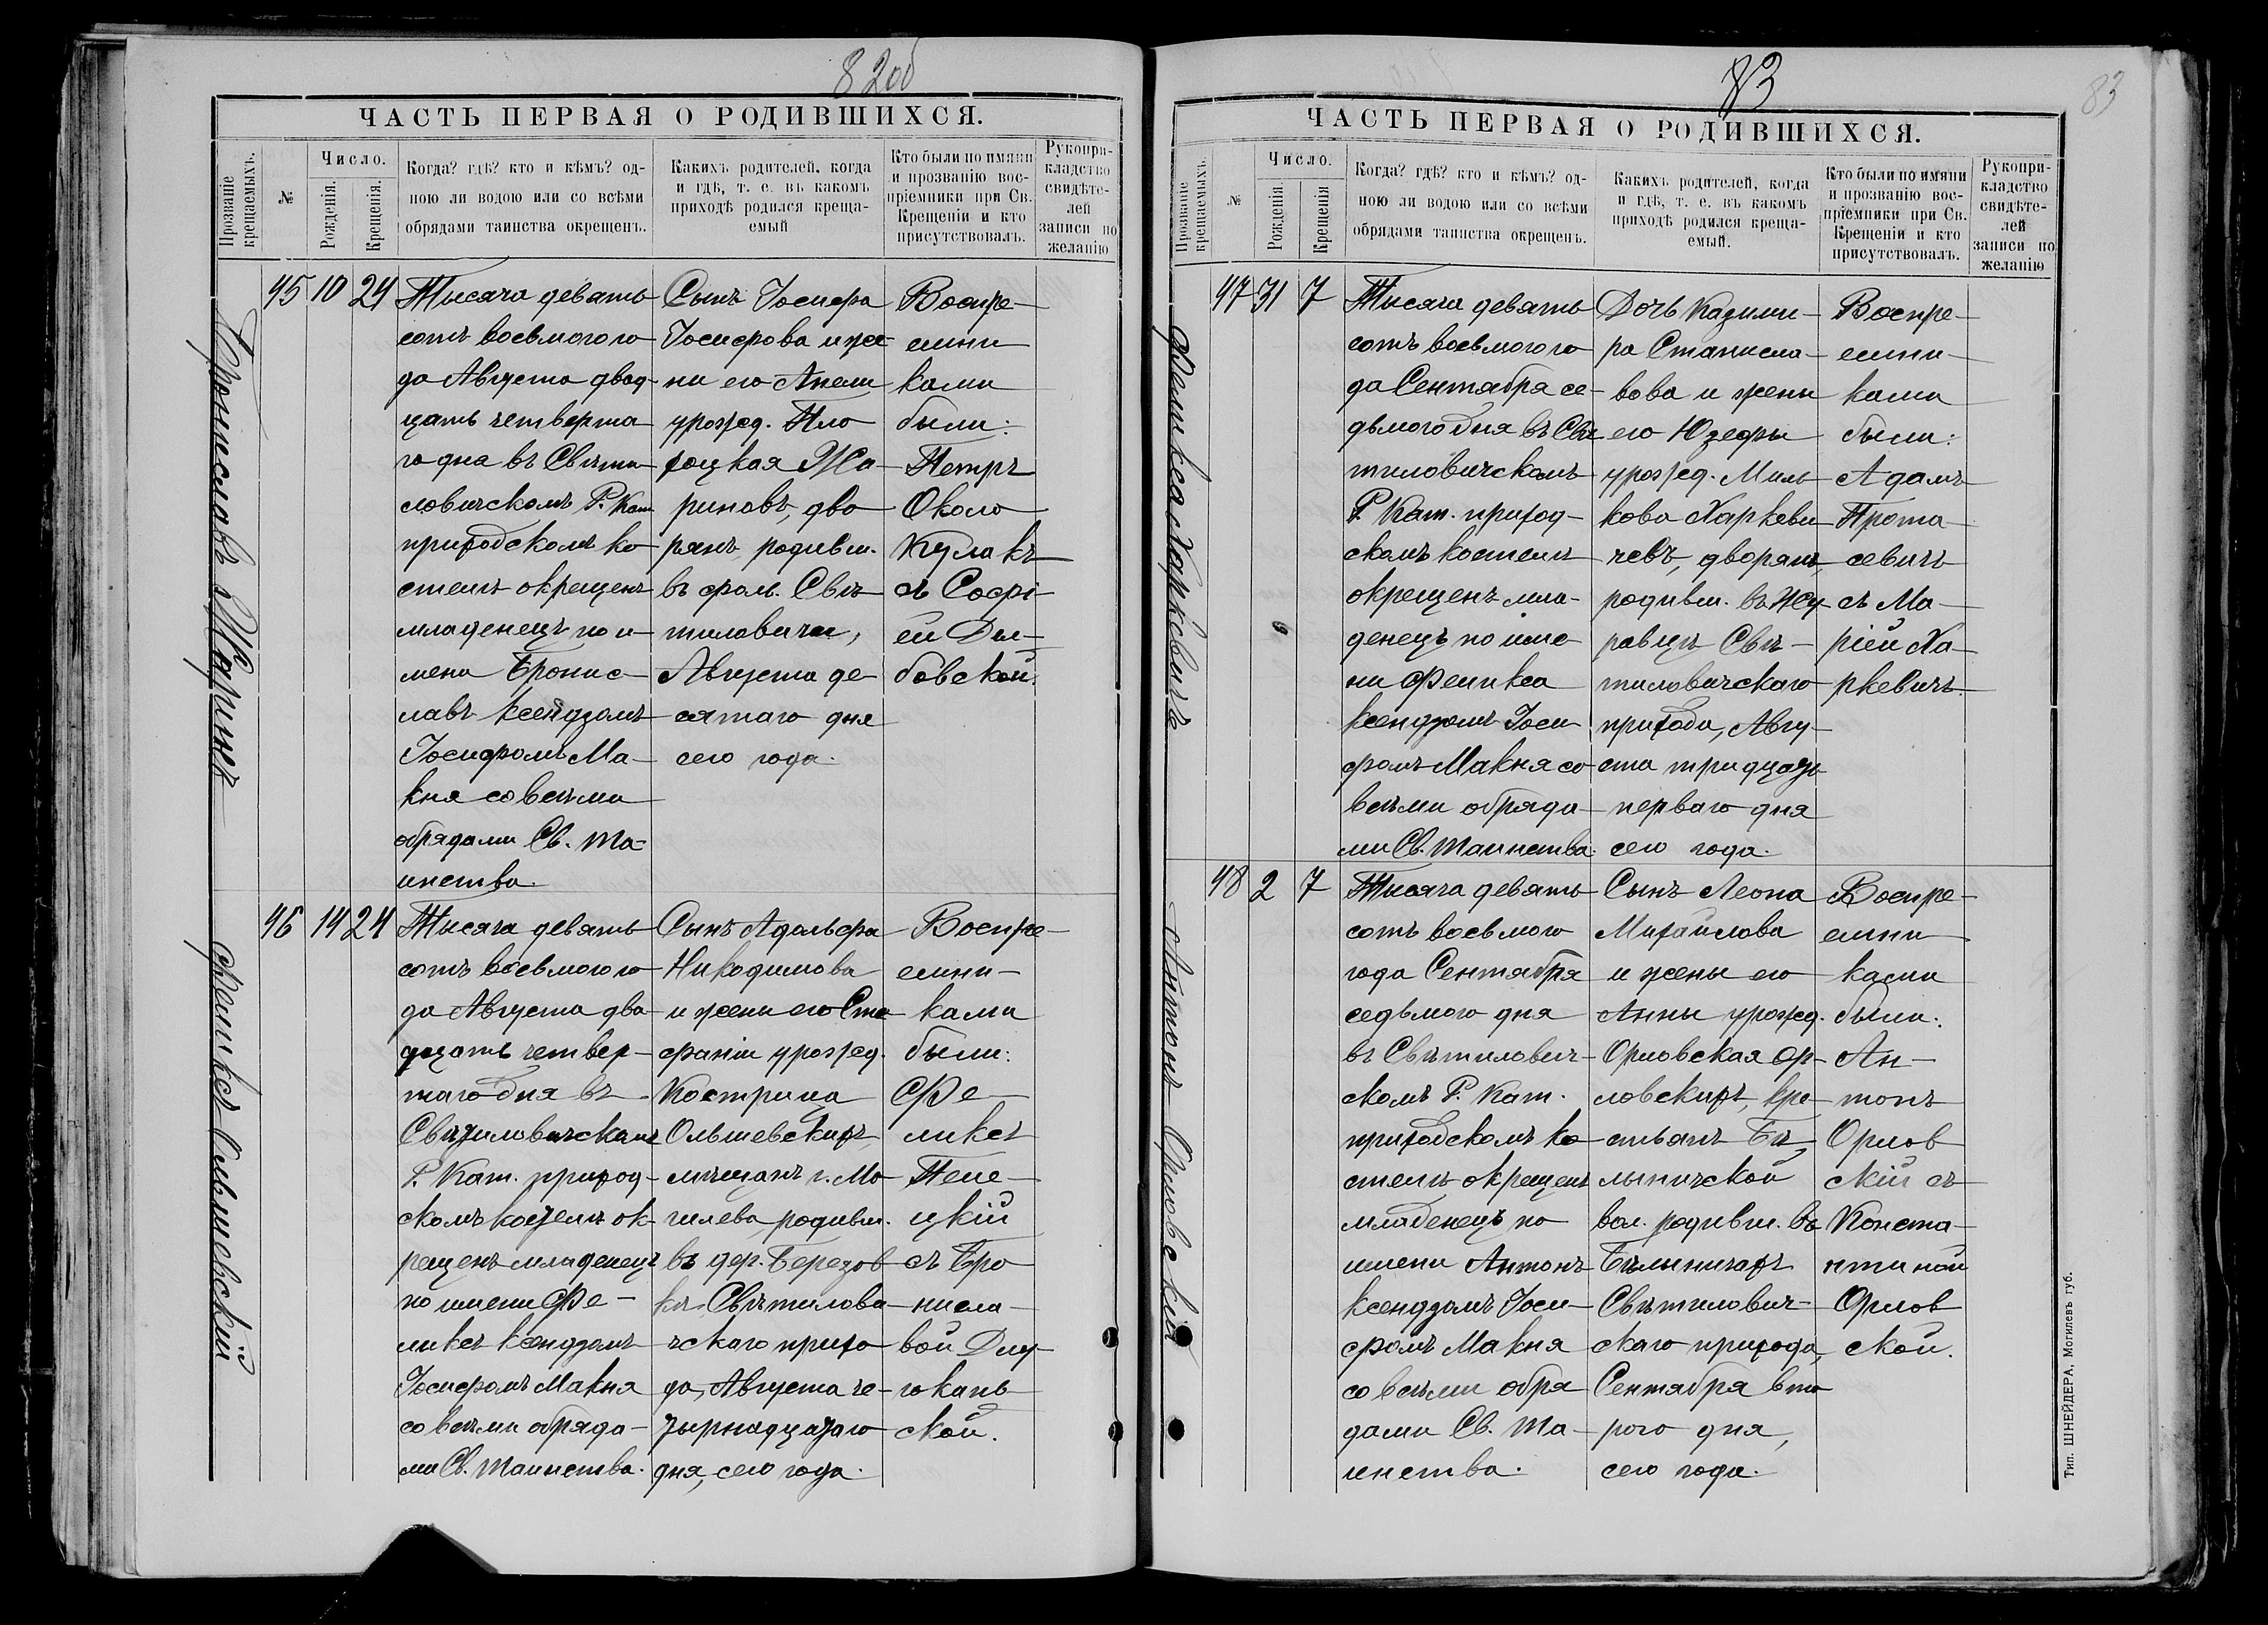 82об
ЧАСТЬ ПЕРВАЯ О РОДИВШИХСЯ.
Прозваніе крещаемыхъ.
№
Число.
Рожденія.
Крещенія.
Когда? гдѣ? кто и кѣмъ? од-
ною ли водою или со всѣми
обрядами таинства окрещенъ.
Какихъ родителей, когда
и гдѣ, т. е. въ какомъ
приходѣ родился креща-
емый
Кто были по имяни
и прозванію вос-
пріемники при Св.
Крещеніи и кто
присутствовалъ.
Рукопри-
кладство
свидѣте-
лей
записи по
желанію
Брониславъ Жаринъ
45 10 24
Тысяча девять
сотъ восьмого го
да Августа двад-
цать четверта
го дна въ Свѣти
ловичскомъ Р. Кат
приходскомъ ко
стелѣ окрещенъ
младенецъ по и-
мени Бронис-
лавъ ксендзомъ
Іосифомъ Ма-
кня со всѣми
обрядами Св. Та-
инства.
Сынъ Іосифа
Іосифова и же
ни его Анели
урожд. Пло
тоцкая Жа-
риновъ, дво
рянъ родивш.
въ фоль. Свѣ-
тиловичи,
Августа де-
сятаго дня
сего года.
Воспре-
емни
ками
были:
Петръ
Около
Кулакъ
съ Софі-
ей Дом-
бовской.
Феликсъ Ольшевскій
46 14 24
Тысяча девять
сотъ восьмого го
да Августа два-
дцать четвер-
таго дня въ
Свѣтиловичскомъ
Р. Кат. приход-
скомъ костелѣ ок-
рещенъ младенецъ
по имени Фе-
ликсъ ксендзомъ
Іосифомъ Макня
со всѣми обряда-
ми Св. Таинства.
Сынъ Адольфа
Никодимова
и жени его Сте
фаніи урожд.
Кострица
Ольшевскихъ,
мѣщанъ г. Мо
гилева, родивш.
въ дер. Березов
кѣ Свѣтилови-
чскаго прихо
да, Августа че-
тырнадцатаго
дня, сего года.
Воспре-
емни-
ками
были:
Фе-
ликсъ
Пеле-
цкій
съ Бро
нисла-
вой Длу-
гокань
ской.
83
83
ЧАСТЬ ПЕРВАЯ О РОДИВШИХСЯ.
Прозваніе крещаемыхъ.
№
Число.
Рожденія.
Крещенія
Когда? гдѣ? кто и кѣмъ? од-
ною ли водою или со всѣми
обрядами таинства окрещенъ.
Какихъ родителей, когда
и гдѣ, т. е. въ какомъ
приходѣ родился креща-
емый.
Кто были по имяни
и прозванію вос-
пріемники при Св.
Крещеніи и кто
присутствовалъ.
Рукопри-
кладство
свидѣте-
лей
записи по
желанію
Феликса Харкевичъ
47 31 7
Тысяча девять
сотъ восьмого го
да Сентября се-
дьмого дня въ Свѣ
тиловичскомъ
Р. Кат. приход-
скомъ костелѣ
окрещенъ мла-
денецъ по име
ни Феликса
ксендзомъ Іоси
фомъ Макня со
всѣми обряда-
ми Св. Таинства.
Дочь Казими-
ра Станисла-
вова и жены
его Юзефы
урожд. Миль
кова Харкеви
чевъ, дворянъ,
родивш. въ Жу-
равцѣ Свѣ-
тиловичскаго
прихода, Авгу-
ста тридцать
перваго дня
сего года.
Воспре-
емни-
ками
были:
Адамъ
Прота-
севичъ
съ Ма-
ріей Ха-
ркевичъ.
Антонъ Орловскій
48 2 7
Тысяча девять
сотъ восьмого
года Сентября
седьмого дня
въ Свѣтилович-
скомъ Р. Кат.
приходскомъ ко
стелѣ окрещенъ
младенецъ по
имени Антонъ
ксендзомъ Іоси-
фомъ Макня
со всѣми обря
дами Св. Та-
инства.
Сынъ Леона
Михайлова
и жены его
Анны урожд.
Орловская Ор-
ловскихъ, кре
стьянъ Бѣ-
лыничской
вол. родивш. въ
Бѣлыничахъ
Свѣтилович-
скаго прихода,
Сентября вто
рого дня,
сего года.
Воспре-
емни
ками
были:
Ан-
тонъ
Орлов
скій съ
Конста-
нтиной
Орлов
ской.
Тип. ШНЕЙДЕРА, Могилевъ губ.